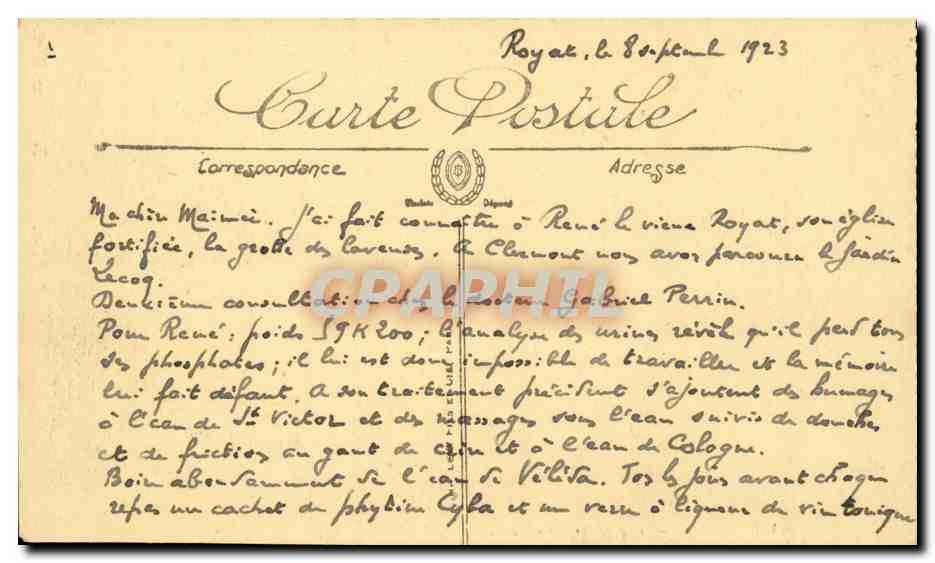 Royat, le 8 septembre 1923
Carte Postale
Correspondance
Adresse
Modèle Déposé
Ma chère Maimée. J'ai fait connaître à René le vieux Royat, son église
fortifiée, la grotte des laveuses. A Clermont nous avons parcouru le Jardin
Lecoq.
CPAPHIL
Deuxième consultation chez le docteur Gabriel Perrin.
Pour René: poids 59K200; l'analyse des urines révèle qu'il perd tous
ses phosphates; il lui est donc impossible de travailler et la mémoire
lui fait défaut. A son traitement précédent s'ajoutent des humages
à l'eau de St Victor et des massages sous l'eau suivis de douches
et de friction au gant de crin et à l'eau de Cologne.
Boire abondamment de l'eau de Véléda. Tous les jours avant chaque
repas un cachet de phytine Cyba et un verre à liqueur de vin tonique